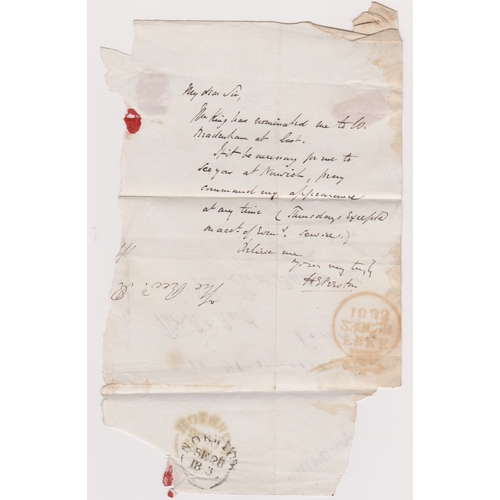 My dear Sir,
The King has nominated me to W.
Bradenham at last.
If it be necessary for me to
see you at Norwich, pray
command my appearance
at any time (Thursdays Excepted
on acct. of Even.g Service.)
Believe me
yours very truly
The Revd.
1833
NORWICH
SE 26
183